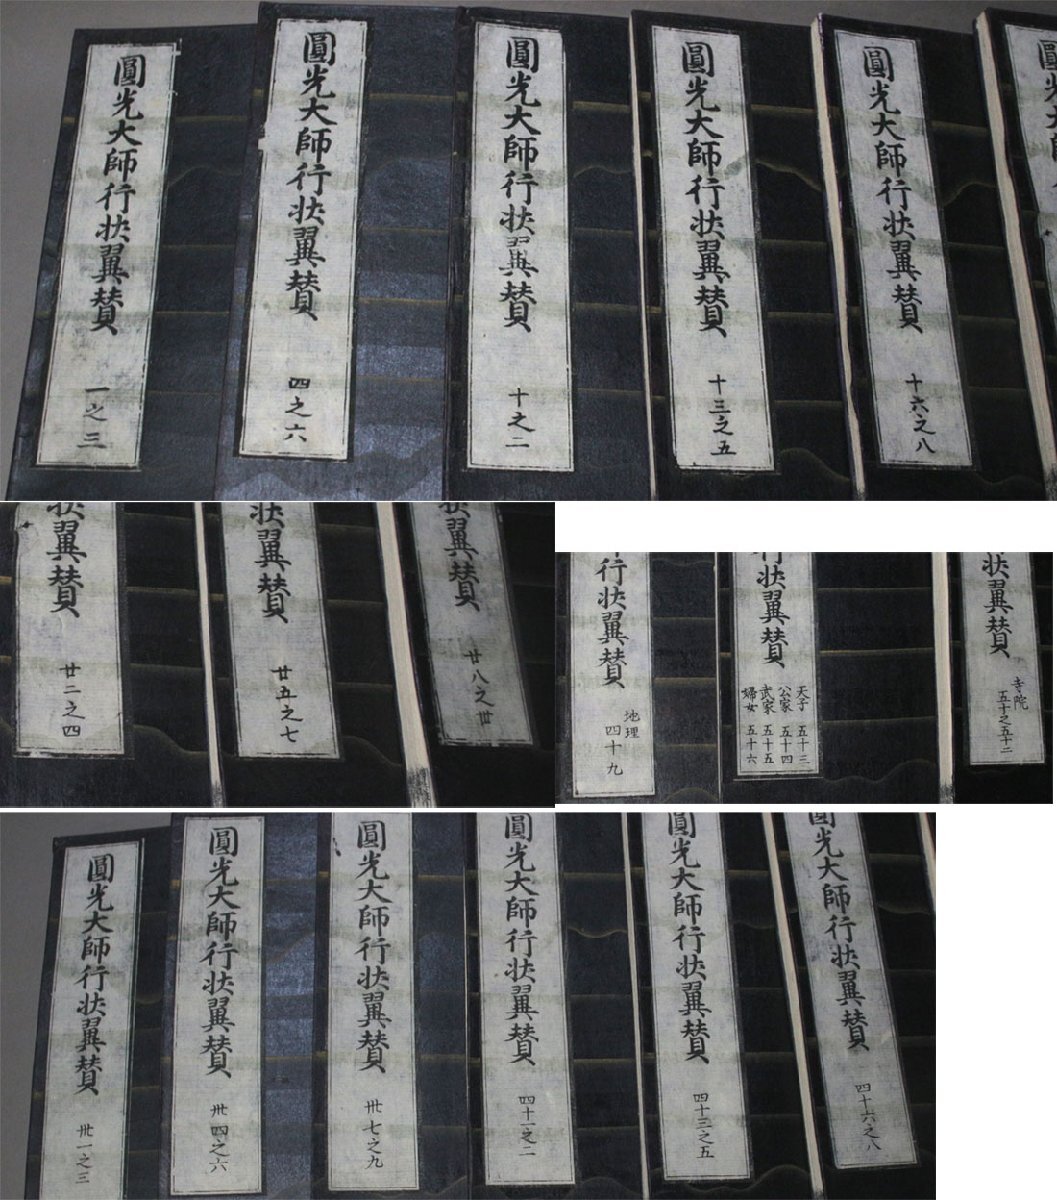 圓光大師行状翼賛
一之三
圓光大師行状翼賛
四之六
圓光大師行状翼賛
十之二
圓光大師行状翼賛
十三之五
圓光大師行状翼賛
十六之八
状翼賛
廿二之四
状翼賛
廿五之七
状翼賛
廿八之卅
行状翼賛
地理
四十九
行状翼賛
天子 五十三
公家 五十四
武家 五十五
婦女 五十六
状翼賛
寺院
五十之五十二
圓光大師行状翼賛
卅一之三
圓光大師行状翼賛
卅四之六
圓光大師行状翼賛
卅七之九
圓光大師行状翼賛
四十一之二
圓光大師行状翼賛
四十三之五
圓光大師行状翼賛
四十六之八